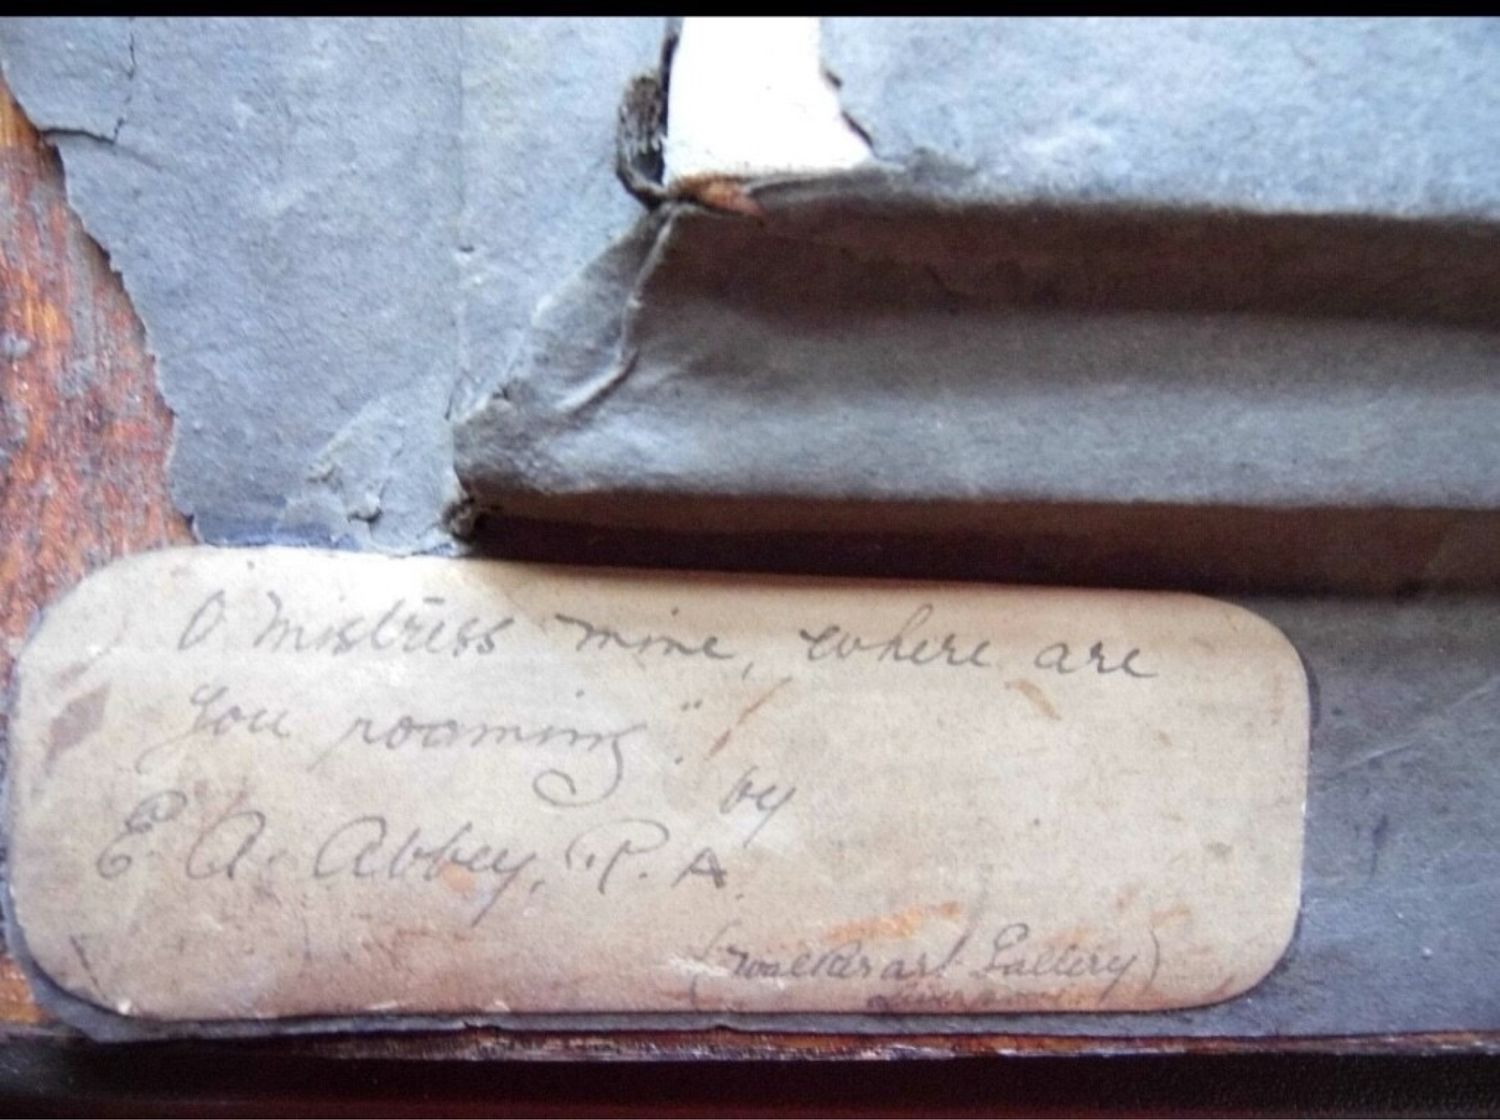 O Mistress mine, where are
you roaming".
by
E. A. Abbey, R. A.
(Walker art Gallery)
Liverpool